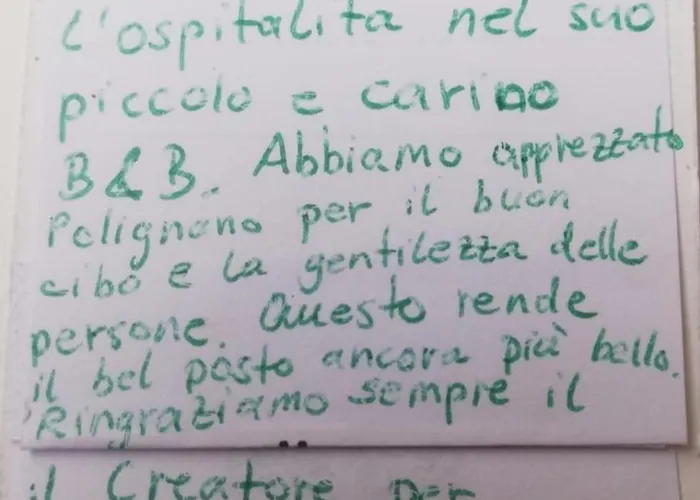 L'ospitalita nel suo
piccolo e carino
B&B. Abbiamo apprezzato
Polignano per il buon
cibo e la gentilezza delle
persone. Questo rende
il bel posto ancora più bello.
Ringraziamo sempre il
il Creatore per